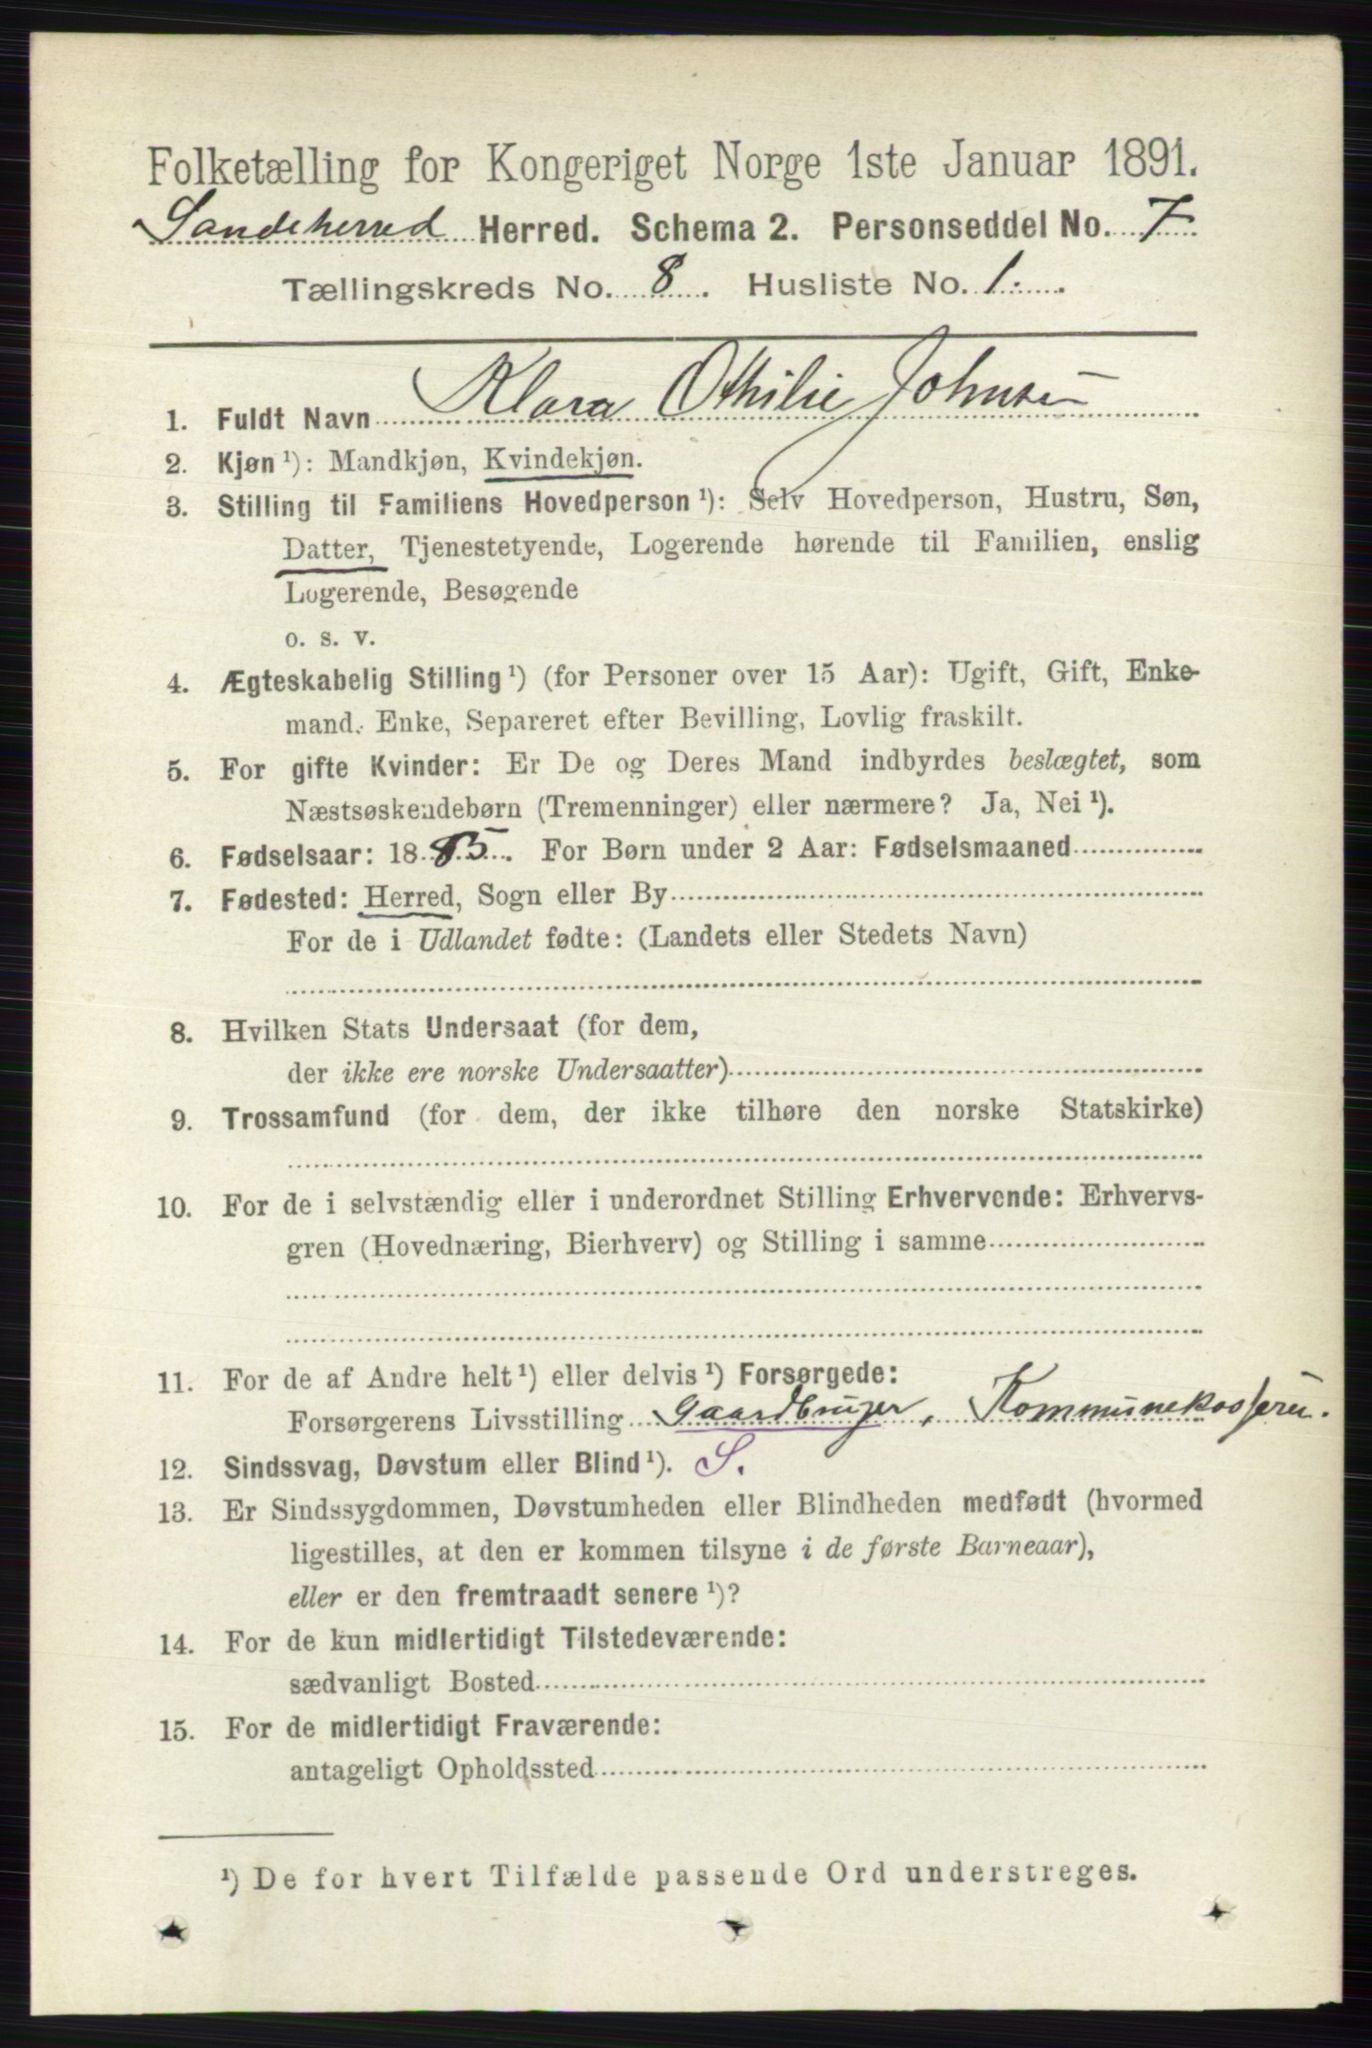 Folketælling for Kongeriget Norge 1ste Januar 1891.
Sandeherred Herred. Schema 2. Personseddel No. 7
Tællingskreds No. 8. Husliste No. 1.
1. Fuldt Navn Klara Othilie Johnsen
2. Kjøn ¹): Mandkjøn, Kvindekjøn.
3. Stilling til Familiens Hovedperson ¹): Selv Hovedperson, Hustru, Søn,
Datter, Tjenestetyende, Logerende hørende til Familien, enslig
Logerende, Besøgende
o. s. v.
4. Ægteskabelig Stilling ¹) (for Personer over 15 Aar): Ugift, Gift, Enke-
mand, Enke, Separeret efter Bevilling, Lovlig fraskilt.
5. For gifte Kvinder: Er De og Deres Mand indbyrdes beslægtet, som
Næstsøskendebørn (Tremenninger) eller nærmere? Ja, Nei ¹).
6. Fødselsaar: 1885. For Børn under 2 Aar: Fødselsmaaned
7. Fødested: Herred, Sogn eller By
For de i Udlandet fødte: (Landets eller Stedets Navn)
8. Hvilken Stats Undersaat (for dem,
der ikke ere norske Undersaatter)
9. Trossamfund (for dem, der ikke tilhøre den norske Statskirke)
10. For de i selvstændig eller i underordnet Stilling Erhvervende: Erhvervs-
gren (Hovednæring, Bierhverv) og Stilling i samme
11. For de af Andre helt ¹) eller delvis ¹) Forsørgede:
Forsørgerens Livsstilling Gaardbruger, Kommunekasserer.
12. Sindssvag, Døvstum eller Blind ¹). S.
13. Er Sindssygdommen, Døvstumheden eller Blindheden medfødt (hvormed
ligestilles, at den er kommen tilsyne i de første Barneaar),
eller er den fremtraadt senere ¹)?
14. For de kun midlertidigt Tilstedeværende:
sædvanligt Bosted
15. For de midlertidigt Fraværende:
antageligt Opholdssted
¹) De for hvert Tilfælde passende Ord understreges.